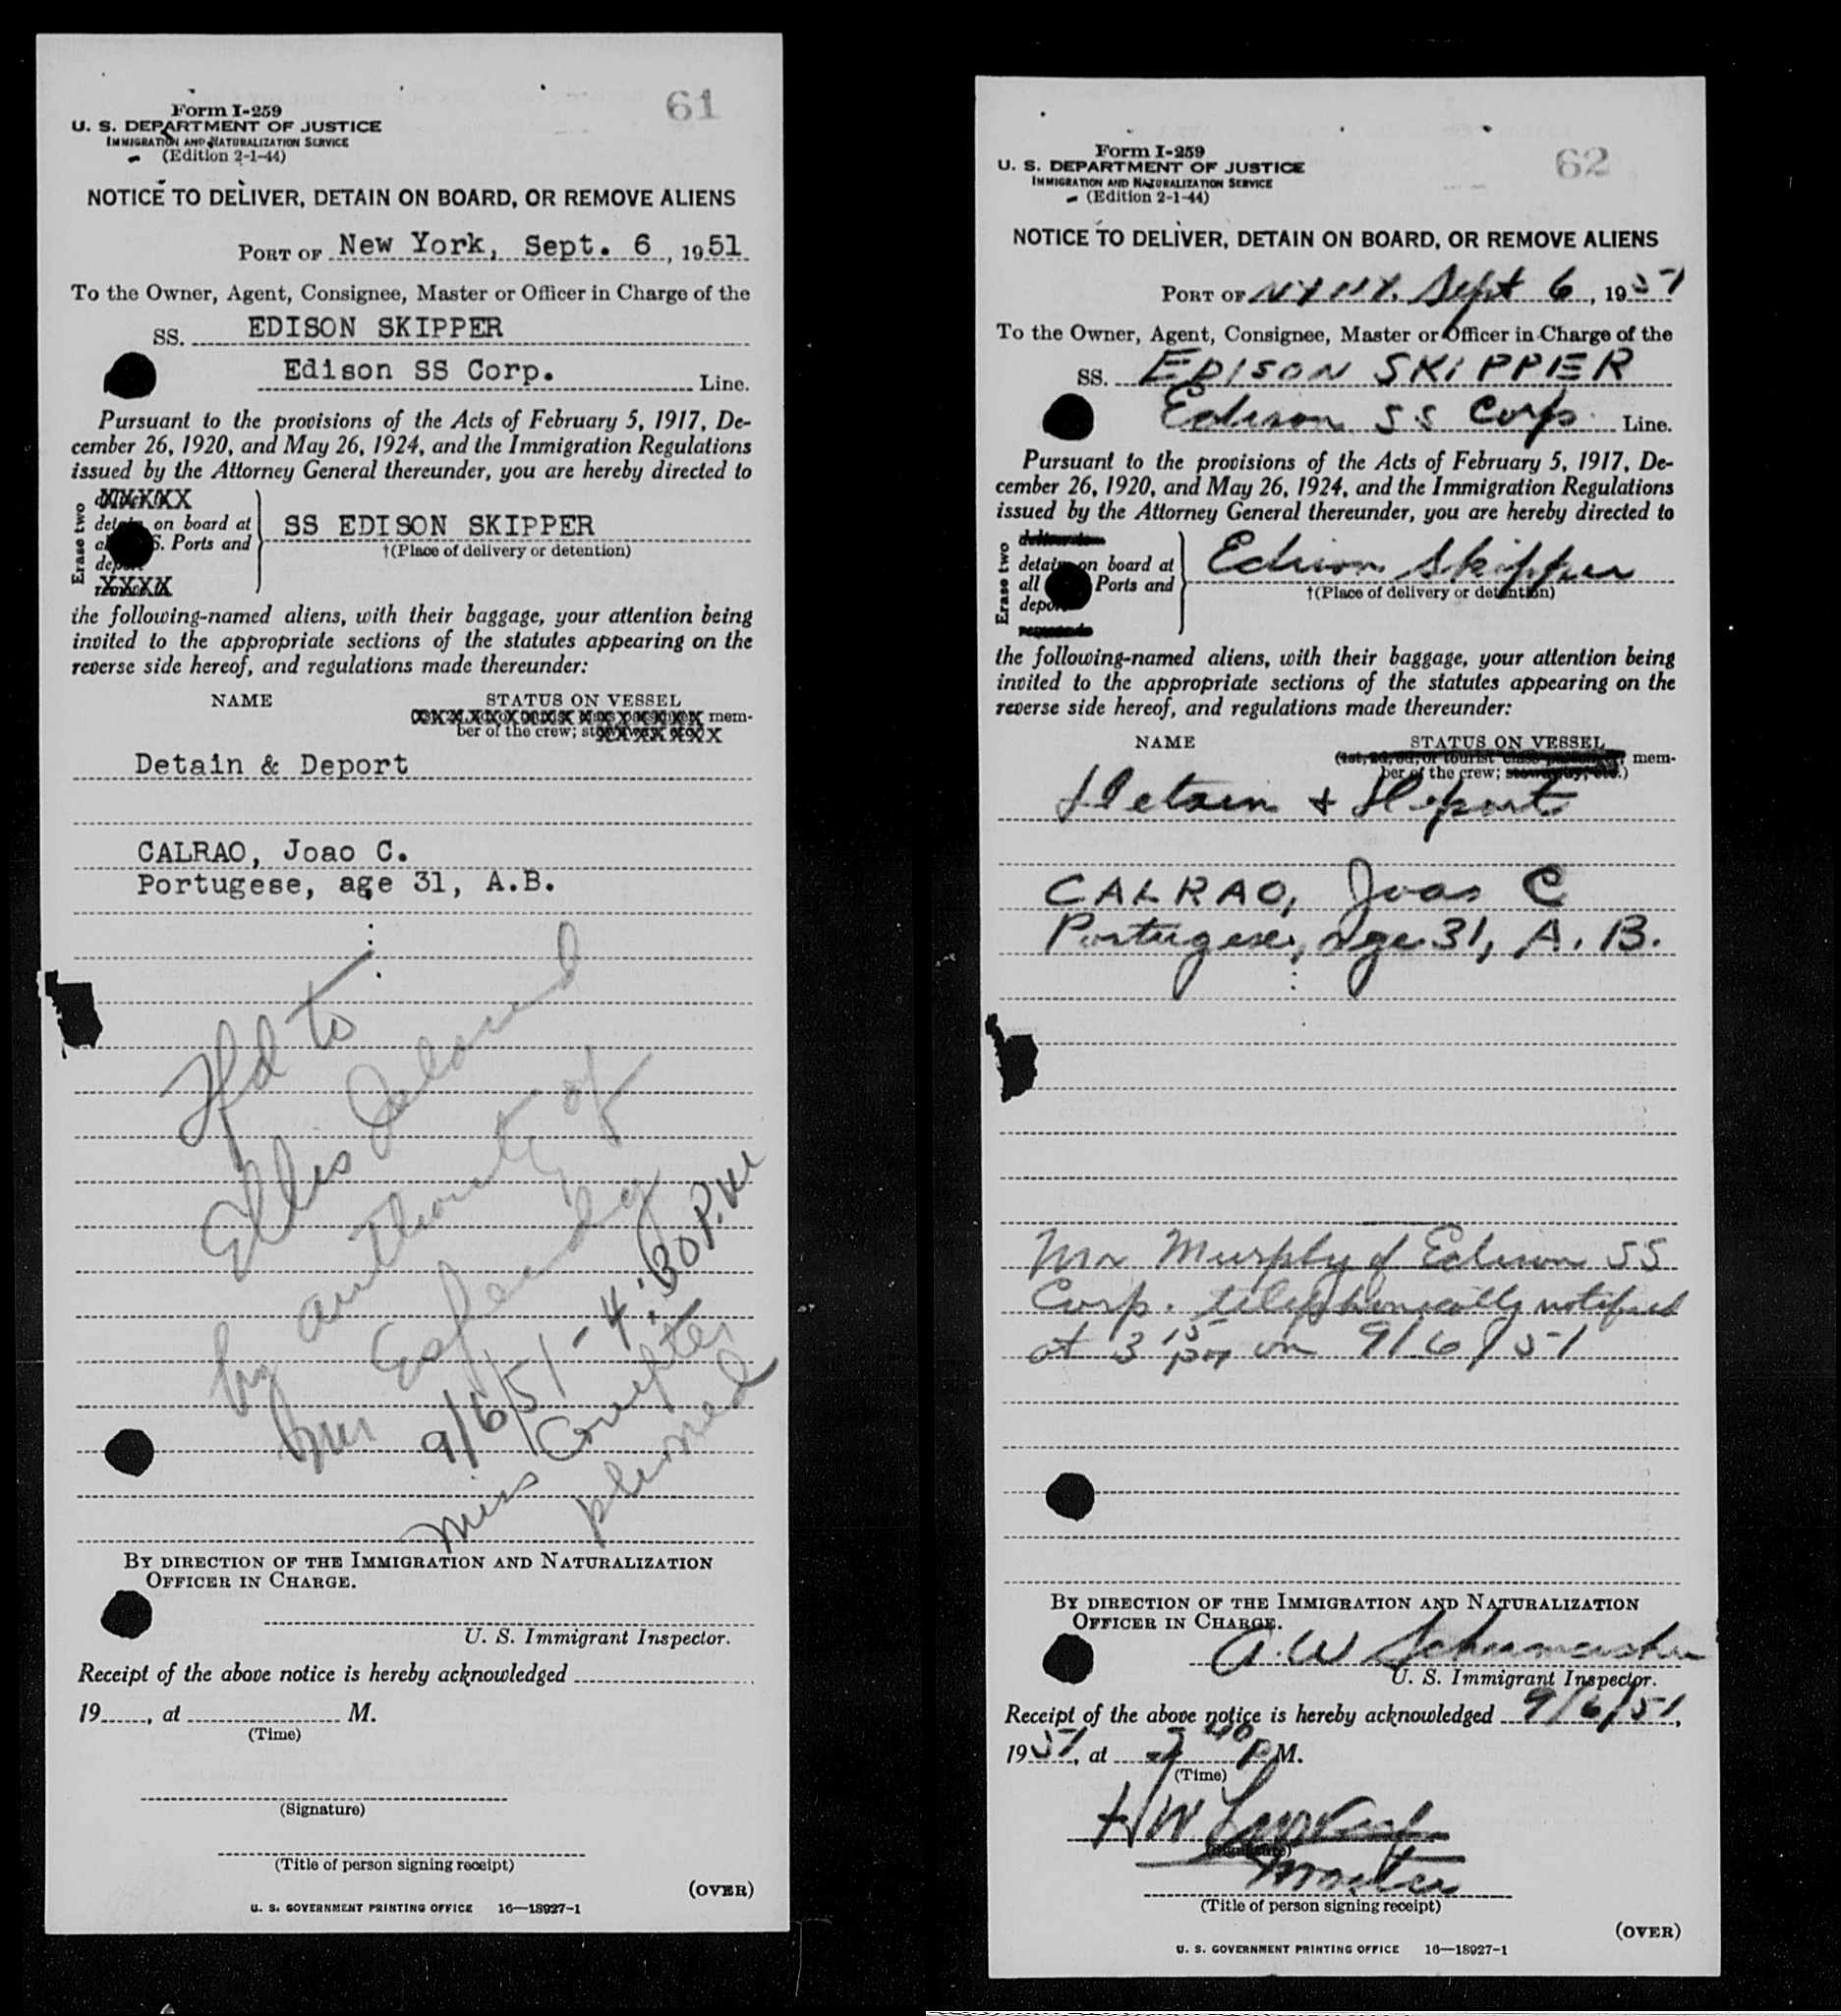 61
Form I-259
U. S. DEPARTMENT OF JUSTICE
IMMIGRATION AND NATURALIZATION SERVICE
(Edition 2-1-44)
NOTICE TO DELIVER, DETAIN ON BOARD, OR REMOVE ALIENS
PORT OF New York, Sept. 6, 1951
To the Owner, Agent, Consignee, Master or Officer in Charge of the
SS. EDISON SKIPPER
Edison SS Corp. Line.
Pursuant to the provisions of the Acts of February 5, 1917, De-
cember 26, 1920, and May 26, 1924, and the Immigration Regulations
issued by the Attorney General thereunder, you are hereby directed to
Erase two
XXXXX
on board at
SS EDISON SKIPPER
S. Ports and
†(Place of delivery or detention)
XXXX
the following-named aliens, with their baggage, your attention being
invited to the appropriate sections of the statutes appearing on the
reverse side hereof, and regulations made thereunder:
NAME STATUS ON VESSEL
mem-
ber of the crew;
Detain & Deport
CALRAO, Joao C.
Portugese, age 31, A.B.
to
Ellis Island
by authority of
Mr
9/6/51 - 4:30 P.M
Miss
phoned
BY DIRECTION OF THE IMMIGRATION AND NATURALIZATION
OFFICER IN CHARGE.
U. S. Immigrant Inspector.
Receipt of the above notice is hereby acknowledged
19 , at M.
(Time)
(Signature)
(Title of person signing receipt)
(OVER)
U. S. GOVERNMENT PRINTING OFFICE 16—18927-1
62
Form I-259
U. S. DEPARTMENT OF JUSTICE
IMMIGRATION AND NATURALIZATION SERVICE
(Edition 2-1-44)
NOTICE TO DELIVER, DETAIN ON BOARD, OR REMOVE ALIENS
PORT OF NYNY. Sept 6, 1951
To the Owner, Agent, Consignee, Master or Officer in Charge of the
SS. EDISON SKIPPER
Edison SS Corp. Line.
Pursuant to the provisions of the Acts of February 5, 1917, De-
cember 26, 1920, and May 26, 1924, and the Immigration Regulations
issued by the Attorney General thereunder, you are hereby directed to
Erase two
on board at
Edison Skipper
all Ports and
†(Place of delivery or detention)
the following-named aliens, with their baggage, your attention being
invited to the appropriate sections of the statutes appearing on the
reverse side hereof, and regulations made thereunder:
NAME STATUS ON VESSEL
mem-
ber of the crew;
Detain & Deport
CALRAO, Joao C
Portugese, age 31, A.B.
Mr Murphy of Edison SS
Corp. telephonically notified
at 3 15 pm on 9/6/51
BY DIRECTION OF THE IMMIGRATION AND NATURALIZATION
OFFICER IN CHARGE.
A.W Schumacher
U. S. Immigrant Inspector.
Receipt of the above notice is hereby acknowledged 9/6/51,
1951, at 40 P M.
(Time)
H W
(Signature)
Master
(Title of person signing receipt)
(OVER)
U. S. GOVERNMENT PRINTING OFFICE 16—18927-1